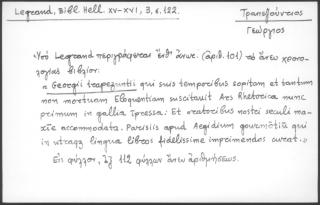 Legrand, Bibl. Hell. XV-XVI, 3, σ. 122.
Τραπεζούντιος
Γεώργιος
Ὑπὸ Legrand περιγράφεται ἔνθ' ἀνωτ. (ἀριθ. 101) τὸ ἄνευ χρονο-
λογίας βιβλίον:
« Georgii trapezuntii qui suis temporibus sopitam et tantum
non mortuam Eloquentiam suscitauit Ars Rhetorica nunc
primum in gallia ipressa: Et oratoribus nostri seculi ma-
xīe accommodata. Parisiis apud Aegidium gourmōtiū qui
in utraqz lingua libros fidelissime imprimendos curat.»
Εἰς φύλλον, ἐξ 112 φύλλων ἄνευ ἀριθμήσεως.